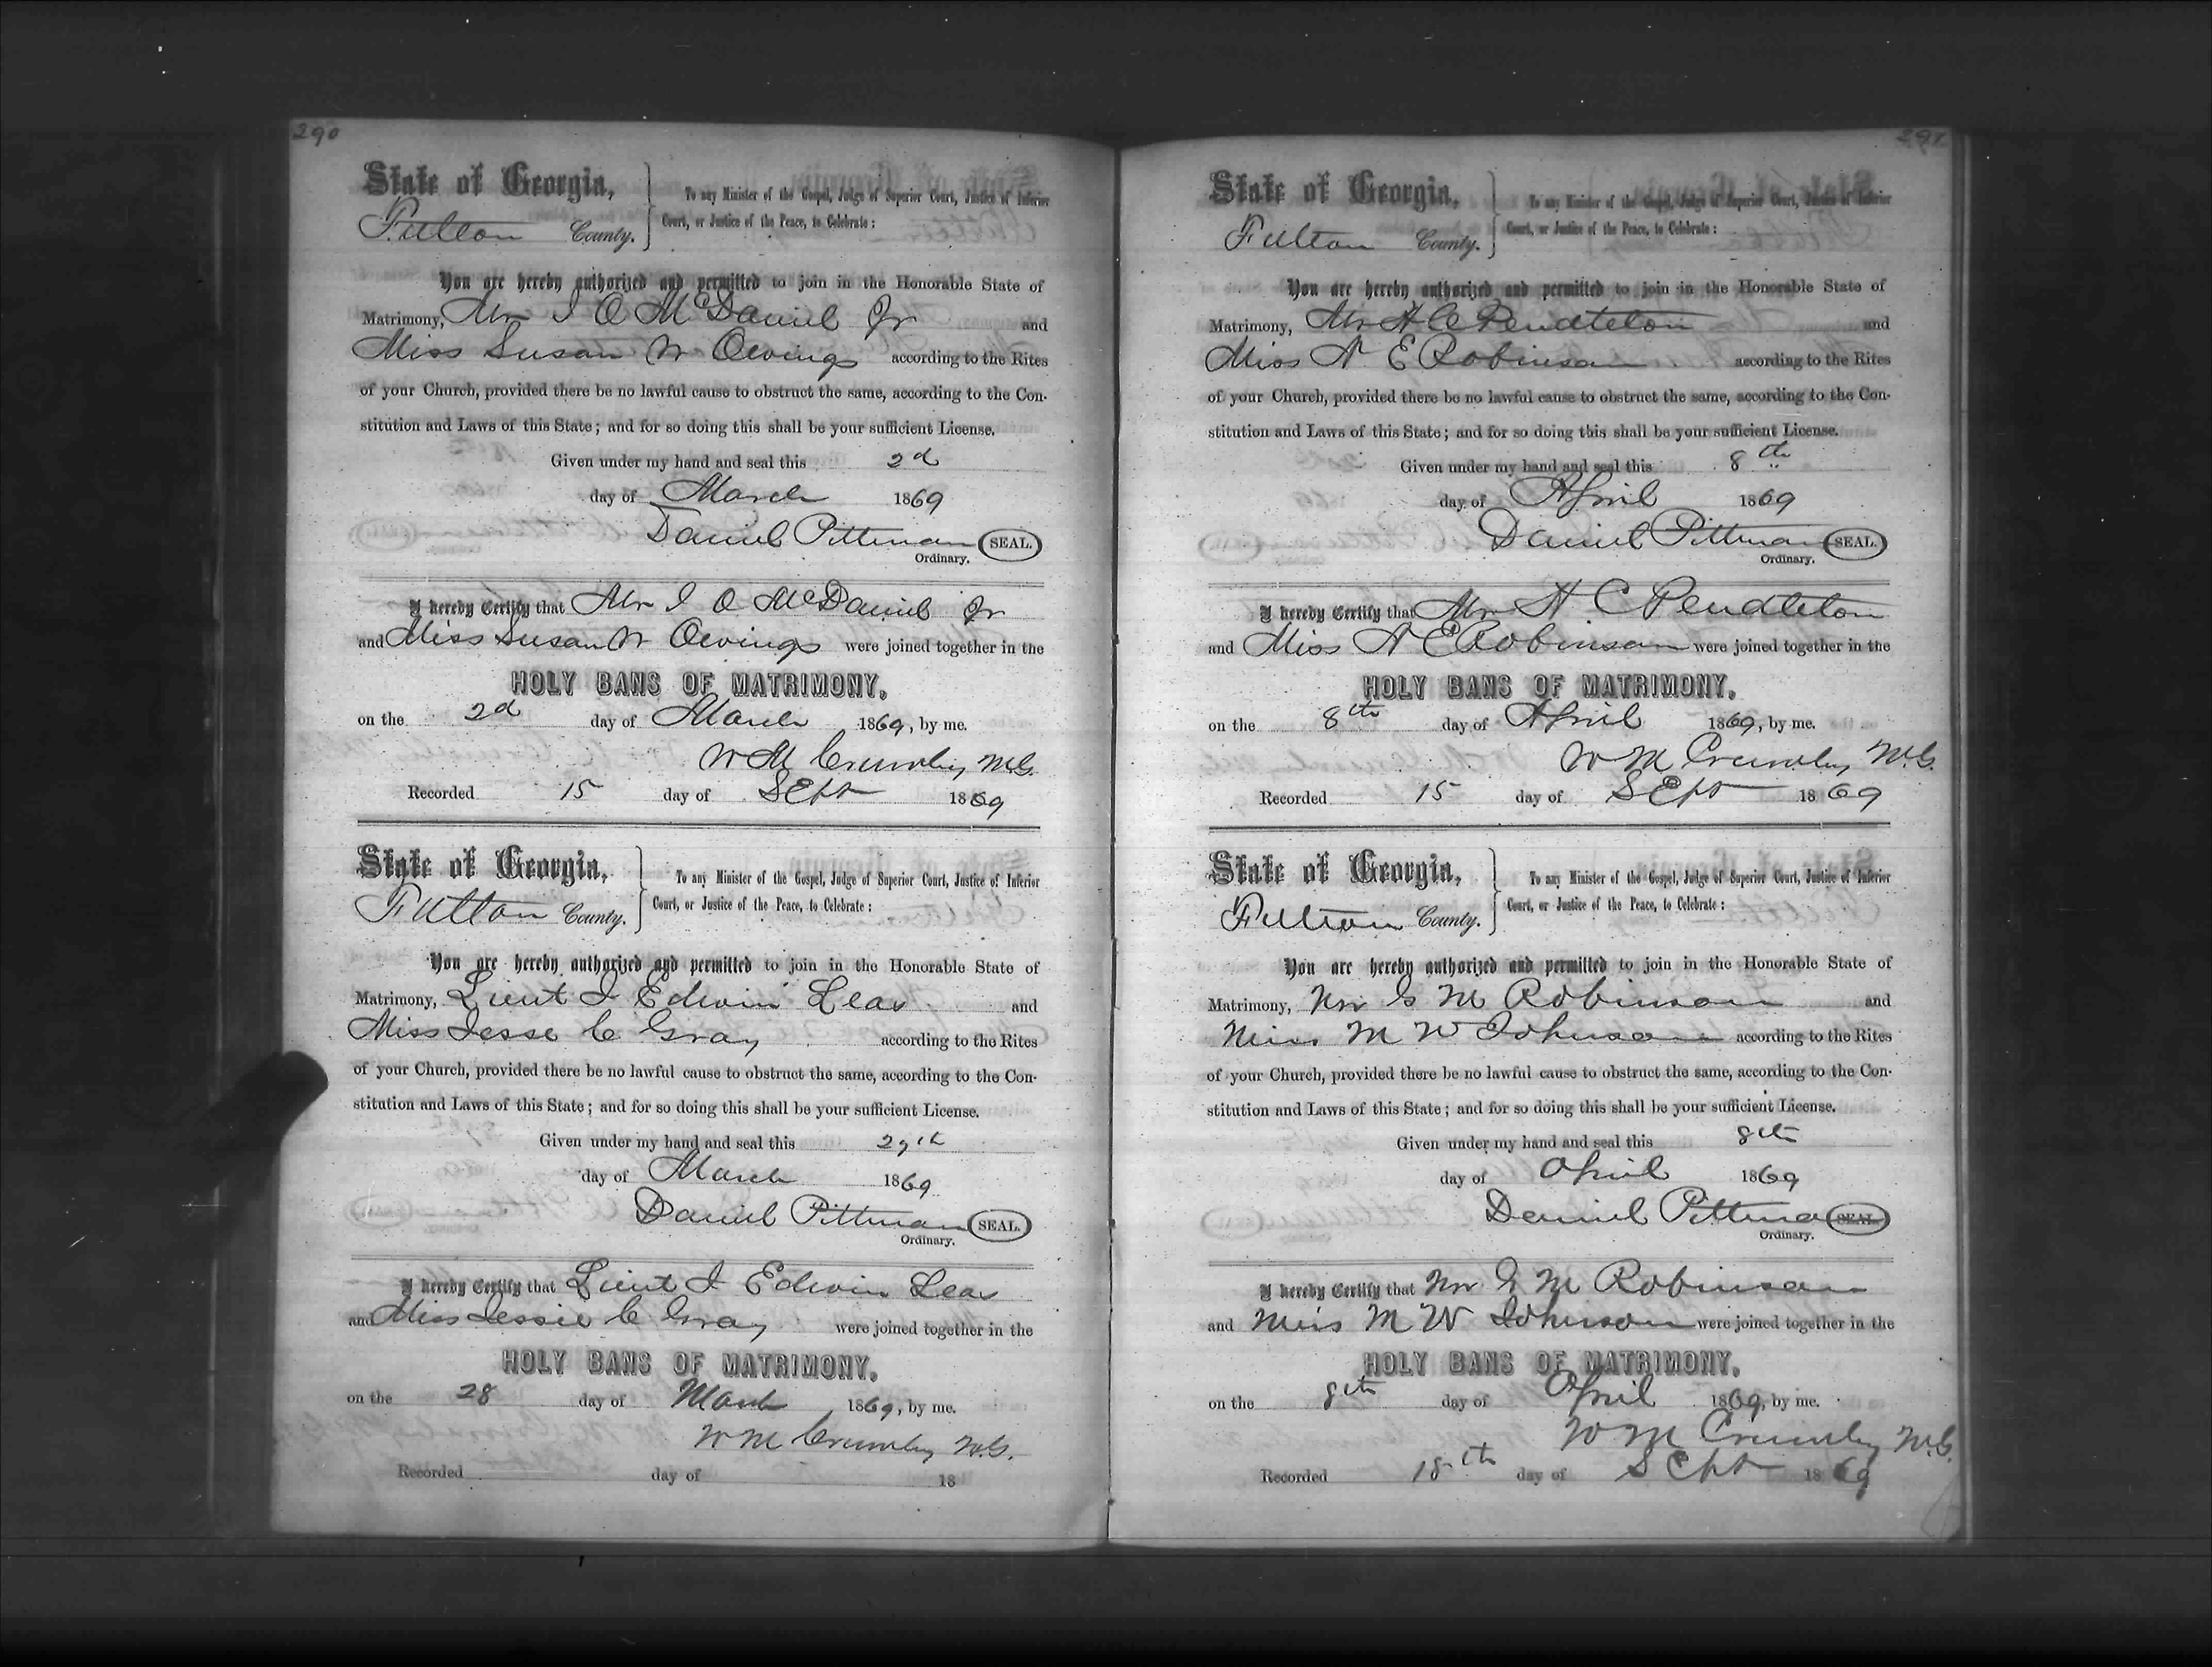 290
State of Georgia,
Fulton County.
To any Minister of the Gospel, Judge of Superior Court, Justice of Inferior
Court, or Justice of the Peace, to Celebrate:
You are hereby authorized and permitted to join in the Honorable State of
Matrimony, Mr I O McDaniel Jr and
Miss Susan W Owings according to the Rites
of your Church, provided there be no lawful cause to obstruct the same, according to the Con-
stitution and Laws of this State; and for so doing this shall be your sufficient License.
Given under my hand and seal this 2d
day of March 1869
Daniel Pittman SEAL.
Ordinary.
I hereby Certify that Mr I O McDaniel Jr
and Miss Susan W Owings were joined together in the
HOLY BANS OF MATRIMONY,
on the 2d day of March 1869, by me.
W M Crumley M.G.
Recorded 15 day of Sept 1869
State of Georgia,
Fulton County.
To any Minister of the Gospel, Judge of Superior Court, Justice of Inferior
Court, or Justice of the Peace, to Celebrate:
You are hereby authorized and permitted to join in the Honorable State of
Matrimony, Lieut I Edwin Leas and
Miss Jesse C Gray according to the Rites
of your Church, provided there be no lawful cause to obstruct the same, according to the Con-
stitution and Laws of this State; and for so doing this shall be your sufficient License.
Given under my hand and seal this 27th
day of March 1869
Daniel Pittman SEAL.
Ordinary.
I hereby Certify that Lieut I Edwin Leas
and Miss Jessie C Gray were joined together in the
HOLY BANS OF MATRIMONY,
on the 28 day of March 1869, by me.
W M Crumley M.G.
Recorded day of 18
291
State of Georgia,
Fulton County.
To any Minister of the Gospel, Judge of Superior Court, Justice of Inferior
Court, or Justice of the Peace, to Celebrate:
You are hereby authorized and permitted to join in the Honorable State of
Matrimony, Mr H C Pendleton and
Miss A E Robinson according to the Rites
of your Church, provided there be no lawful cause to obstruct the same, according to the Con-
stitution and Laws of this State; and for so doing this shall be your sufficient License.
Given under my hand and seal this 8th
day of April 1869
Daniel Pittman SEAL.
Ordinary.
I hereby Certify that Mr H C Pendleton
and Miss A E Robinson were joined together in the
HOLY BANS OF MATRIMONY,
on the 8th day of April 1869, by me.
W M Crumley M.G.
Recorded 15 day of Sept 1869
State of Georgia,
Fulton County.
To any Minister of the Gospel, Judge of Superior Court, Justice of Inferior
Court, or Justice of the Peace, to Celebrate:
You are hereby authorized and permitted to join in the Honorable State of
Matrimony, Mr G M Robinson and
Miss M W Johnson according to the Rites
of your Church, provided there be no lawful cause to obstruct the same, according to the Con-
stitution and Laws of this State; and for so doing this shall be your sufficient License.
Given under my hand and seal this 8th
day of April 1869
Daniel Pittman SEAL.
Ordinary.
I hereby Certify that Mr G M Robinson
and Miss M W Johnson were joined together in the
HOLY BANS OF MATRIMONY,
on the 8th day of April 1869, by me.
W M Crumley M.G.
Recorded 15th day of Sept 1869